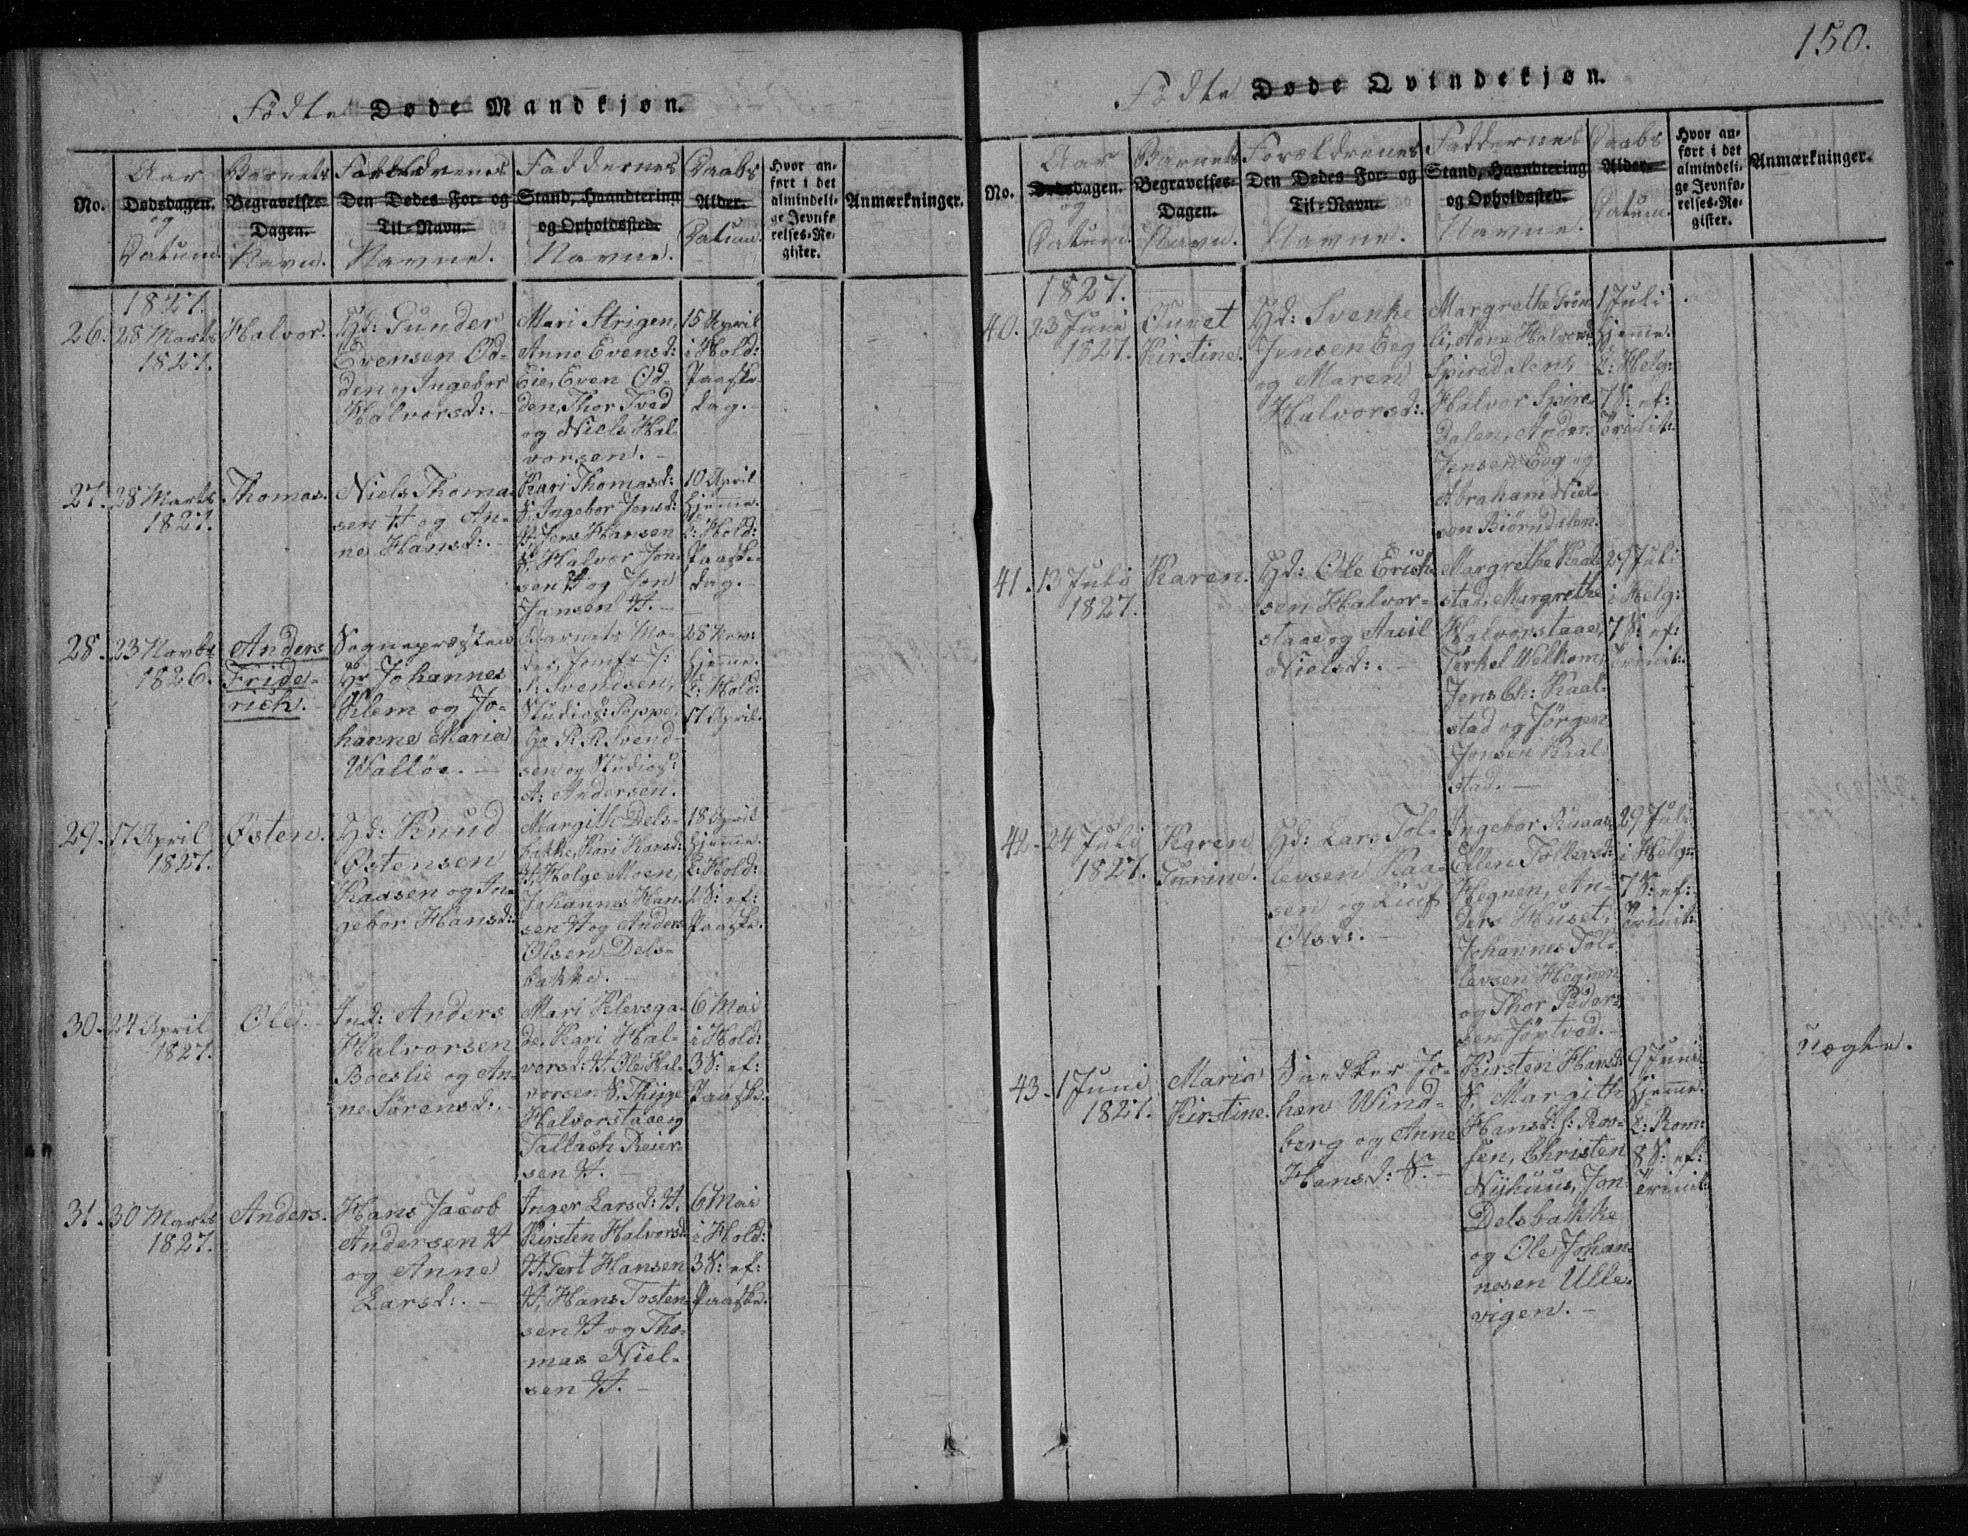 Födte Døde Mandkjøn.
No.
Aar
Dødsdagen.
og
Datum.
Barnets
Begravelses-
Dagen.
Navn.
Forældrenes
Den Dødes For- og
Til-Navn.
Navne.
Faddernes
Stand, Haandtering
og Opholdssted.
Navne.
Daabs
Alder.
Datum.
Hvor an-
ført i det
almindeli-
ge Jevnfø-
relses-Re-
gister.
Anmærkninger.
1827.
26.
28 Marts
1827.
Halvor.
Gd: Gunder
Evensen Od-
den og Ingebor
Halvorsd:. -
Mari Strigen,
Anne Evensd:
Eie, Even Od-
den, Thor Tved
og Niels Hal-
vorsen. -
15 April
i Hold:
Paaske-
dag. -
27.
28 Marts
1827.
Thomas.
Niels Thoma-
sen H og An-
ne Hansd:. -
Kari Thomasd:
S, Ingebor Jensd:
H, Jens Hansen
S, Halvor Jon-
sen H og Jon
Jansen H. -
10 April
hjemme.
C: Hold:
Paaske-
dag. -
28.
23 Novbr
1826.
Anders
Fride-
rich.
Sognepræsten
Hr Johannes
Klem og Jo-
hanne Maria
Walløe. -
Barnets Mo-
der, Jomfr J:
Svendsen,
Studios: Poppe,
Hr P. R. Svend-
sen og Studios:
A: Andersen.
28 Nov:
hjemme.
C: Hold:
17 April.
29.
17 April
1827.
Østen.
Gd: Knud
Østensen
Kaasen og In-
gebor Hansd:
Margith Dels-
bakke, Kari Hansd:
H, Helge Moen,
Johannes Han-
sen H og Anders
Olsen Dels-
bakke. -
18 April
hjemme.
C: Hold:
2 S: ef:
Paaske.
30.
24 April
1827.
Ole. -
Ind: Anders
Halvorsen
Boeslie og An-
ne Sørensd:. -
Mari Klevsga-
de, Kari Hal-
vorsd: H, Ole Hal-
vorsen S, Thyge
Halvorstaae og
Tallach Reier-
sen H. -
6 Mai
i Hold:
3 S: ef:
Paaske.
31.
30 Marts
1827.
Anders.
Hans Jacob
Andersen H
og Anne
Larsd:. -
Inger Larsd: H,
Kirsten Halvorsd:
H, Gert Hansen
H, Hans Tosten-
sen H og Tho-
mas Niel-
sen H. -
6 Mai
i Hold:
3 S: ef:
Paaske.
150.
Födte Døde Qvindekjøn.
No.
Aar
Dødsdagen.
og
Datum.
Barnets
Begravelses-
Dagen.
Navn.
Forældrenes
Den Dødes For- og
Til-Navn.
Navne.
Faddernes
Stand, Haandtering
og Opholdssted.
Navne.
Daabs
Alder.
Datum.
Hvor an-
ført i det
almindeli-
ge Jevnfø-
relses-Re-
gister.
Anmærkninger.
1827.
40.
23 Juni
1827.
Juret
Kirstine.
Gd: Svenke
Jensen Eeg
og Maren
Halvorsd:.
Margrethe Grøn-
li, Anne Halvorsd:
Spiredalen,
Halvor Spire-
dalen, Anders
Jensen Eeg og
Abraham Niel-
sen Biørndalen.
1 Juli
hjemme.
C: Helg:
7 S: ef:
Trinit:
41.
13 Juli
1827.
Karen.
Gd: Ole Erich-
sen Halvor-
staae og Aasil
Nielsd:. -
Margrethe Kaal-
stad, Margrethe
Halvorstaae,
Terkel Welkom,
Jens Ch: Kaal-
stad og Jørgen
Jonsen Kaal-
stad. -
29 Juli
i Helg:
7 S: ef:
Trinit:
42.
24 Juli
1827.
Karen
Gurine.
Gd: Lars Tol-
levsen Kaa-
sen og Liuf
Olsd:. -
Ingebor Ruaas,
Ellen Tollevsd:
Hegnen, An-
ders Huset,
Johannes Tol-
levsen Hegnen
og Thor Peder-
sen Jøntvod. -
29 Juli
i Helg:
7 S: ef:
Trinit:
43.
1 Juni
1827.
Maria
Kirstine.
Snedker Jo-
han Wind-
berg og Anne
Hansd: S. -
Kirsten Hansd:
S, Margith
Hansd: s: Rov-
sen, Christen
Nyhuus, Jon
Delsbakke
og Ole Johan-
nesen Ulle-
vigen. -
9 Juni
hjemme.
C: Rom:
8 S: ef:
Trinit:
Uægte.